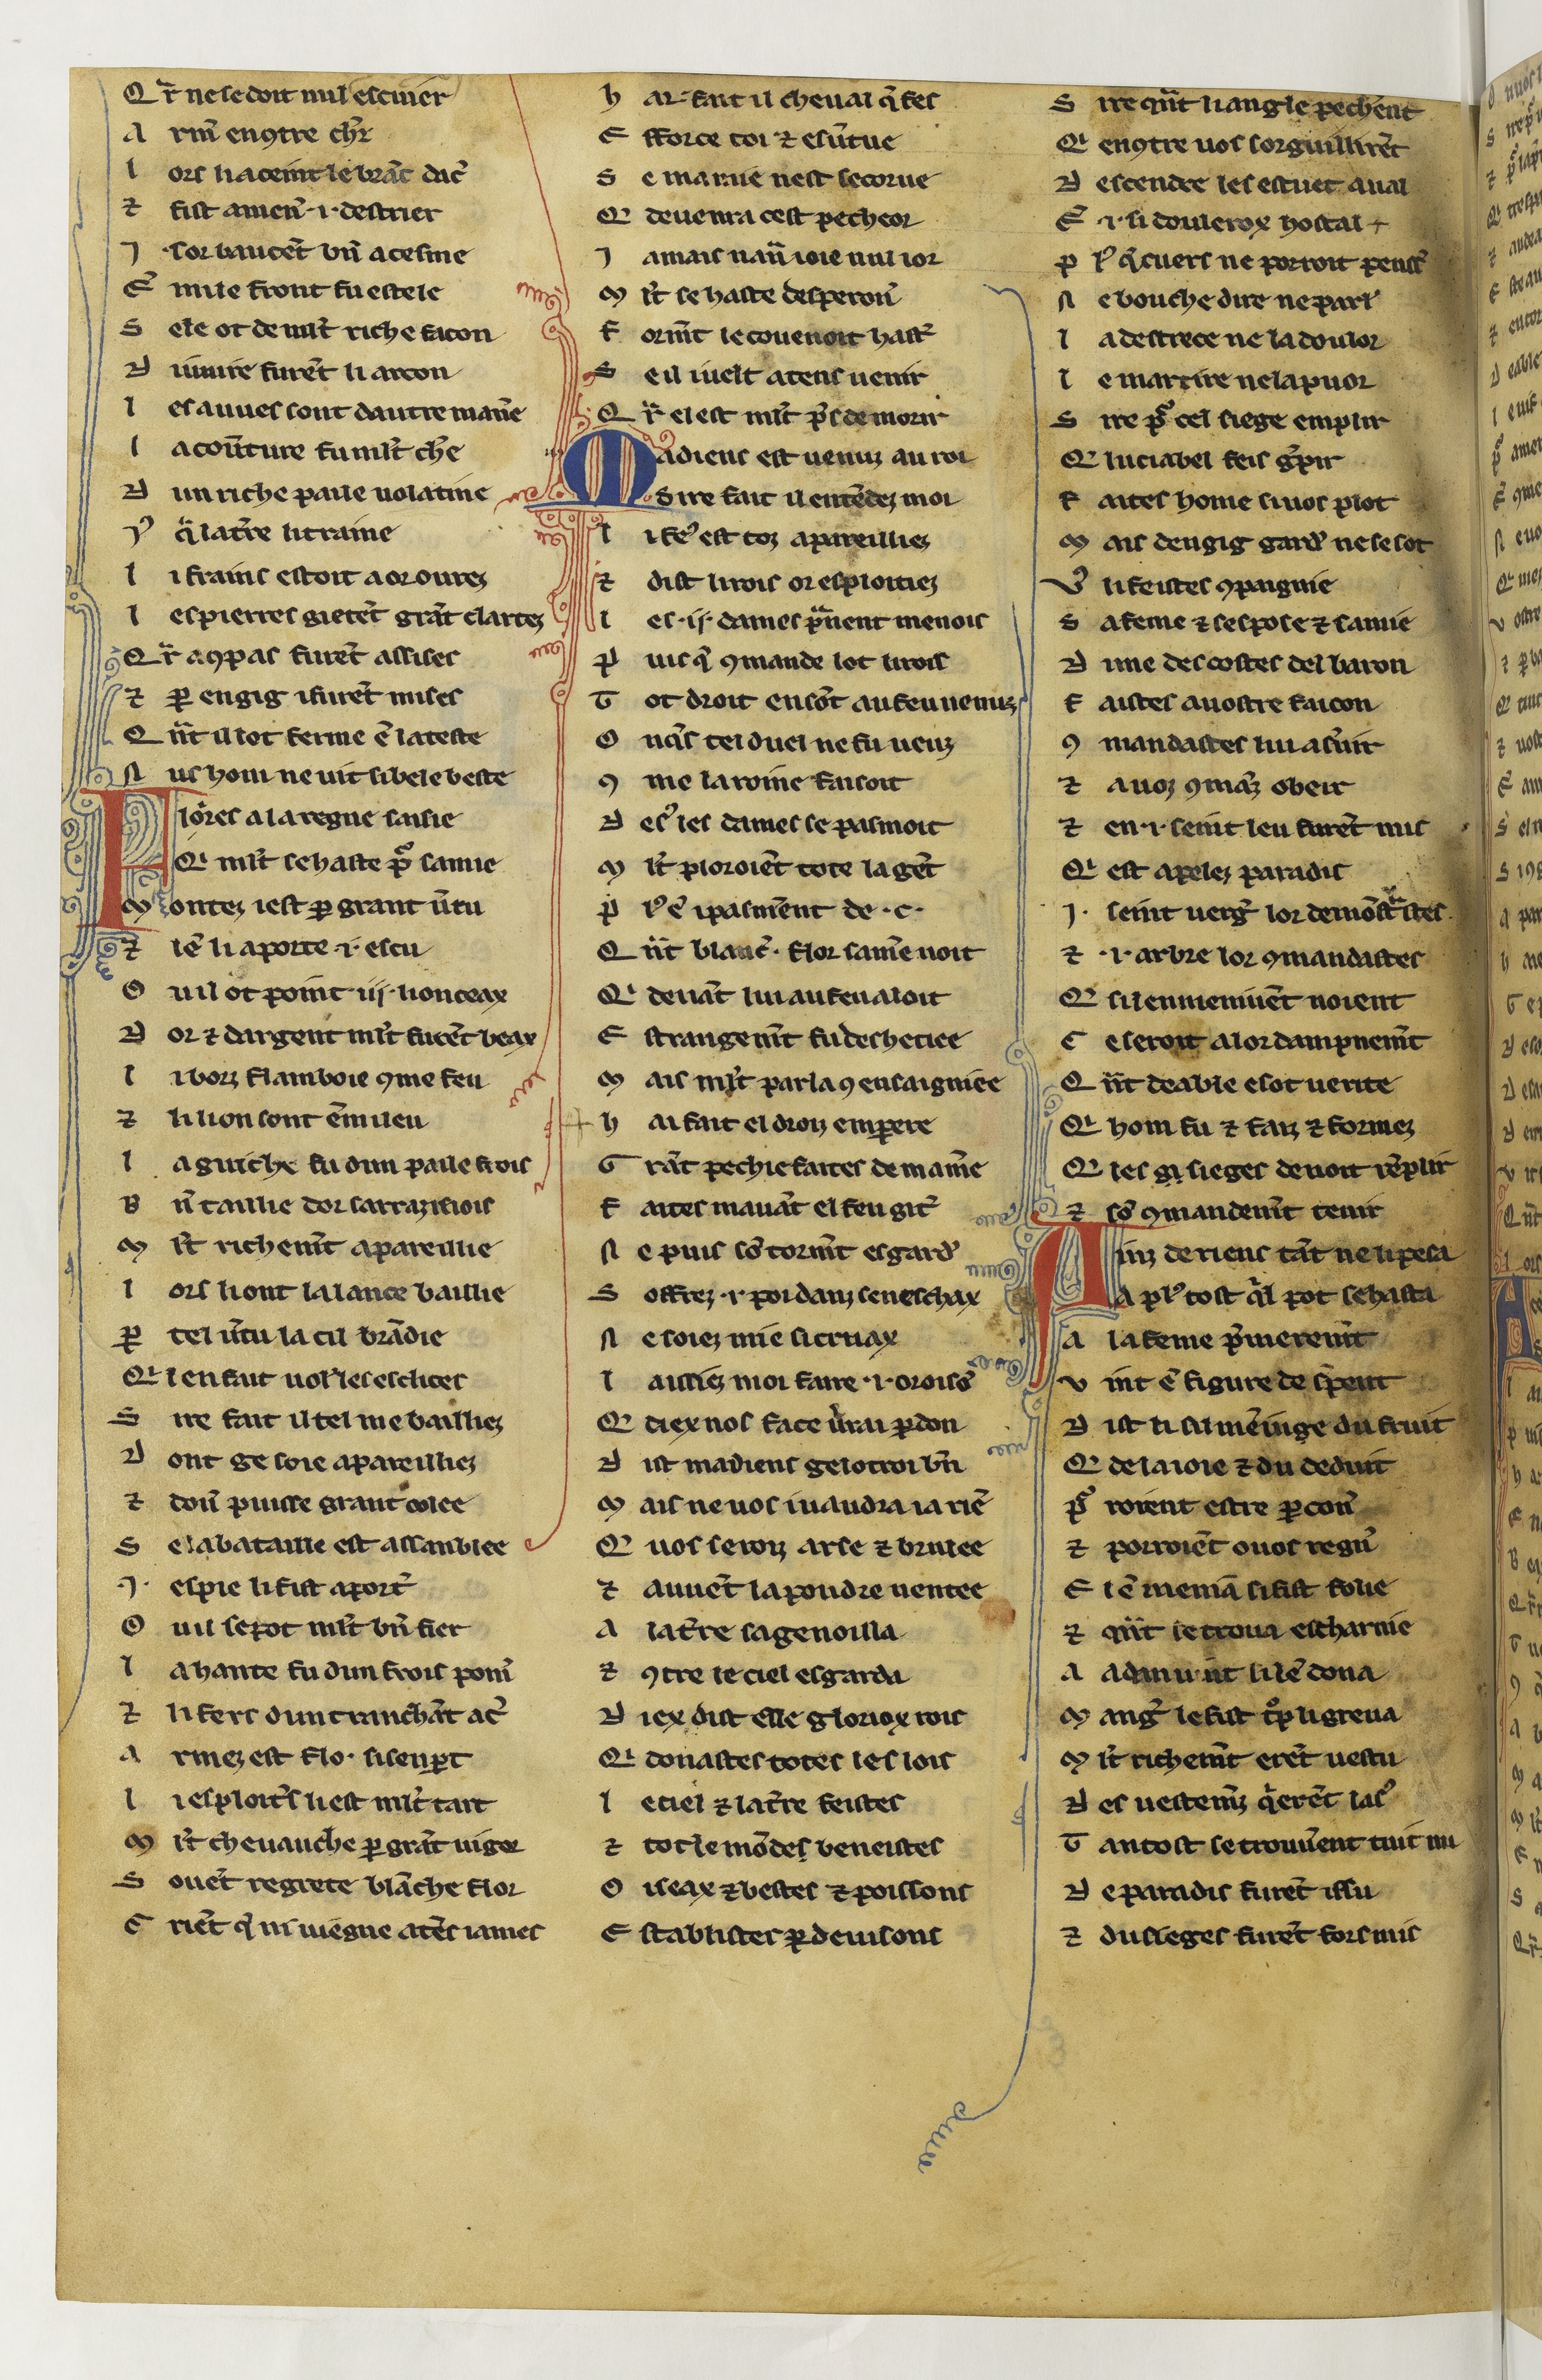 Qr̃ ne se doit nul escuier
A rm̃ en ꝯtre chr̃
l ors li a ceint le branc dac̃
⁊ fist amen̾ .i. destrier
J . sor baucẽt bñ acesme
Eͥ mile front fu estele
S ele ot de mlt̃ riche facon
D iuuire furẽt li arcon
l es auues sont dautre manr̃e
l a coũture fu mlt̃ chr̃e
D un riche paile uolatine
Jͥ q̾ la tr̃re li traine
l i frains estoit a or ourez
l es pierres gietẽt grãt clartez
Qr̃ a ꝯpas furẽt assises
⁊ ꝑ engig i furẽt mises
Q ñt il lot ferme ẽ la teste
N us hom ne uit si bele beste
Flores a la regne saisie
Qͥ mlt̃ se haste pͦ samie
M ontez iest ꝑ grant ũtu
⁊ lẽ li aporte .i. escu
O u il ot point .iij. lionceax
D or ⁊ dargent mlt̃ furẽt beax
l i borz flamboie ꝯme feu
⁊ li lion sont ẽmileu
l a guiche fu dun paile frois
B ñ taillie dor sarrazinois
M lt̃ richem̃t apareillie
l ors li ont la lance baillie
ꝑ tel ũtu la cil brãdie
Qͥ l en fait uol̾ les esclices
S ire fait il tel me bailliez
D ont ge soie apareilliez
⁊ doñ puisse grant colee
S e la bataille est assanblee
.J. espie li fist aport̾
O u il se pot mlt̃ bñ fier
l a hante fu dun frois pom̃
⁊ li fers dun tranchãt ac̃
A rmez est flo. si sen ꝑt
l i esploitr̃s li est mlt̃ tart
M lt̃ cheuauche ꝑ grãt uigor
S ouẽt regrete blãche flor
C riẽt q̾ ni uiegne a tẽs iames
h ar fait il cheual q̾ fes
E fforce toi ⁊ esũtue
S e ma mie nest secorue
Qͥ deuenra cest pecheor
J amais naur̃ ioie nul ior
M lt̃ se haste desperoñ
F orm̃t le couenoit hast̾
S e il iuelt a tens uenir
Qr̃ el est mlt̃ p̾s de morir
Madiens est uenuz au roi
Sire fait il entẽdez moi
l i feͬ est toz apareilliez
⁊ dist li rois or esploitiez
l es .ij. dames p̾nent menois
P uis q̾ ꝯmande lot li rois
T ot droit en sõt au feu uenuz
O nq̾s tel duel ne fu ueuz
ꝯ me la roine faisoit
D esͬ les dames se pasmoit
M lt̃ ploroiẽt tote la gẽt
P lͬ eͬ i pasmẽent de .c.
Q ñt blanc̃. flor sam̃e uoit
Qͥ deuãt lui au feu aloit
E strangem̃t fu dechetiee
M ais mlt̃ parla ꝯ ensaigniee
h ai fait el droiz emperere
G rãt pechie faites de ma m̃e
F aites mauãt el feu git̾
N e puis sõ torm̃t esgard̾
S offrez .i. poi danz seneschax
N e soiez mie si cruax
l aissiez moi faire .i. oroisõ
Qͥ diex nos face ũrai ꝑdon
D ist madiens ge lotroi bñ
M ais ne uos i uaudra ia riẽ
Qͥ uos seroiz arse ⁊ brulee
⁊ au uẽt la poudre uentee
A la tr̃re sagenoilla
⁊ ꝯtre le ciel esgarda
D iex dist elle gloriox rois
Qͥ donastes totes les lois
l e ciel ⁊ la tr̃re feistes
⁊ tot le mõdes beneistes
O iseax ⁊ bestes ⁊ poissons
E stablistes ꝑ deuisons
S ire q̃nt li angle pechent
Qͥ en ꝯtre uos sorguillirẽt
D escendre les estuet aual
Eͥ .i. si doulerox hostal
P lͬ q̾ cuers ne porroit pens̾
N e bouche dire ne parl̾
l a destrece ne la doulor
l e martire ne la puor
S ire pͦ cel siege emplir
Qͥ luciabel feis g̾pir
F aites home si uos plot
M ais dengig gard̾ ne se sot
Vͦ li feistes ꝯpaignie
S a feme ⁊ sespose ⁊ samie
D une des costes del baron
F aistes a uostre faicon
ꝯ mandastes lui asũir
⁊ a uoz ꝯmãz obeir
⁊ en .i. seint leu furẽt mis
Qͥ est apelez paradis
J. seint uerg̾ lor demõstrastes
⁊ .i. arbre lor ꝯmandastes
Qͥ sil en meniuẽt noient
C e seroit a lor dampnem̃t
Q ñt deable e sot uerite
Qͥ hom fu ⁊ faiz ⁊ formez
Qͥ les gͥ sieges deuoit rẽplir
⁊ sõ ꝯmandem̃t tenir
Ainz de riens tãt ne li pesa
A plͬ tost q̾l pot se hasta
A la feme p̾merem̃t
V int ẽ figure de s̾pent
D ist li sil mẽiuge du fruit
Qͥ de la ioie ⁊ du deduit
Pͦ roient estre ꝑconr̃
⁊ porroiẽt o uos regñ
E lẽ menia si fist folie
⁊ q̃nt se troua escharnie
A adam uint si lẽ dona
M ang̾ le fist tͦp li greua
M lt̃ richem̃t erẽt uestu
D es uestem̃z q̾ erẽt lasͬ
T antost se trouuerent tuit nu
D e paradis furẽt issu
⁊ du sieges furẽt fors mis